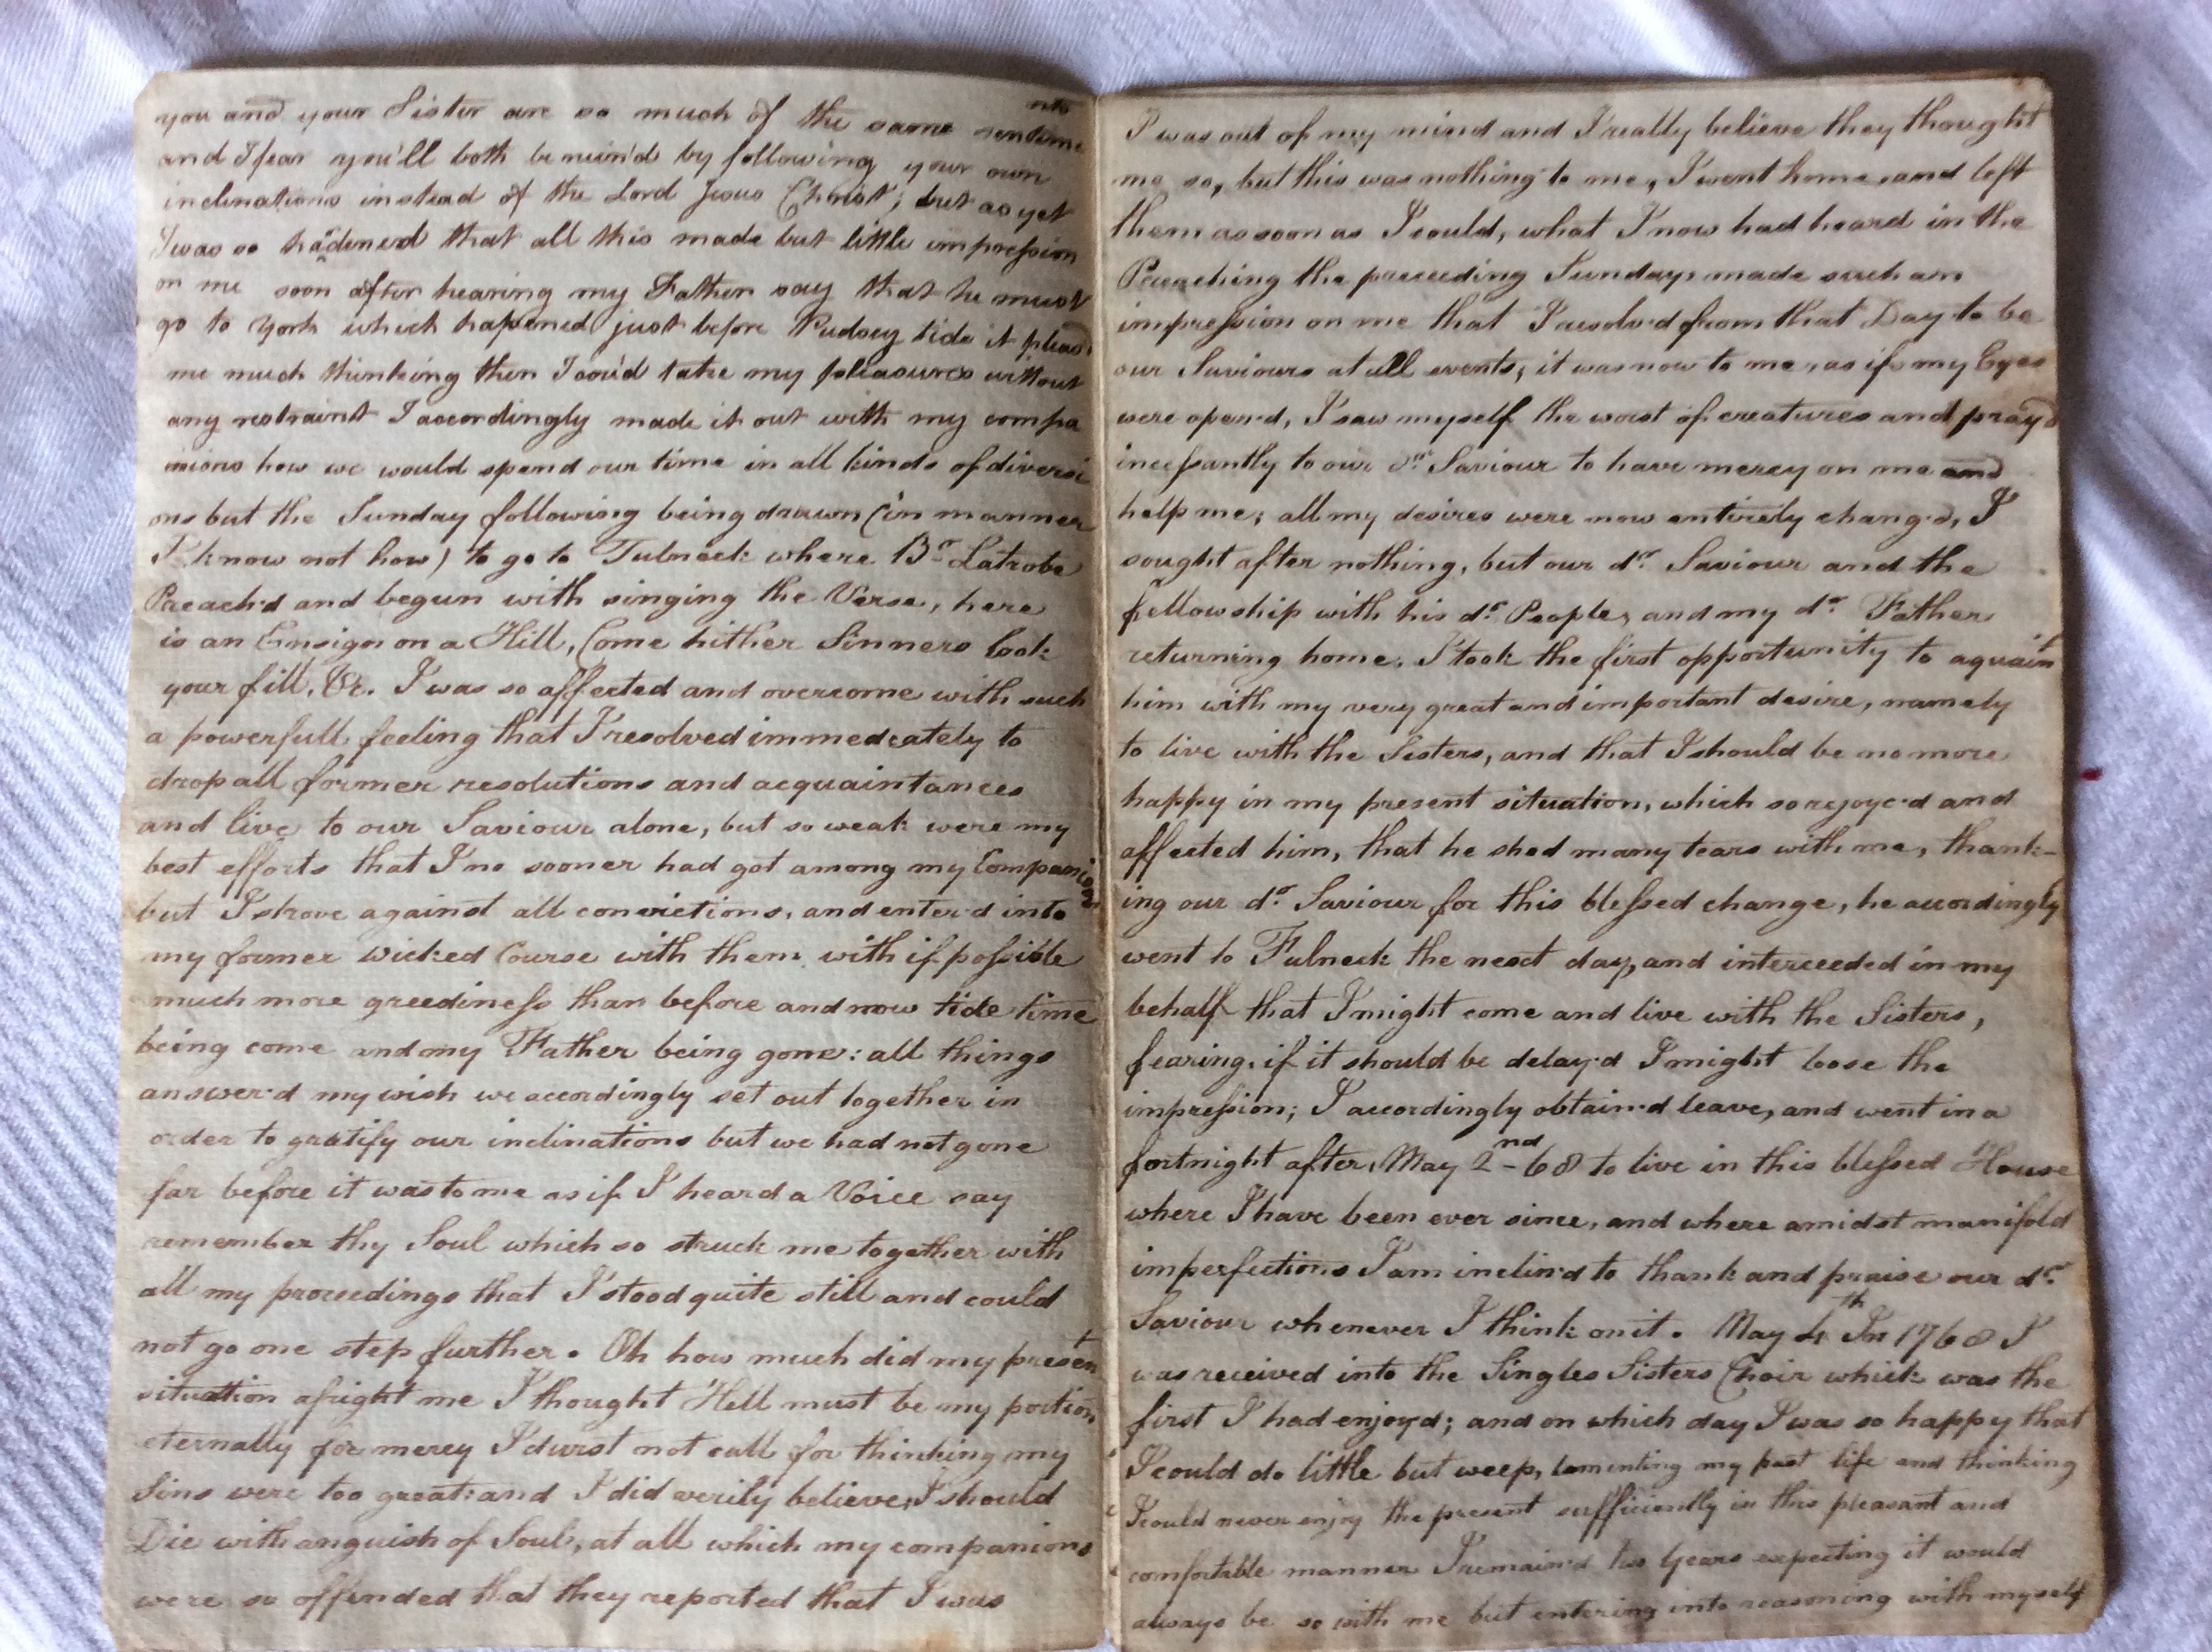 you and your Sister are so much of the same sentime nts
and I fear you'll both be ruin'd by following your own
inclinations instead of the Lord Jesus Christ; but as yet
I was so hardened that all this made but little impression
on me soon after hearing my Father say that he must
go to York which hapened just before Pudsey tide it pleas'd
me much thinking then I cou'd take my pleasures without
any restraint I accordingly made it out with my compa
nions how we would spend our time in all kinds of diversi
ons but the Sunday following being drawn (in manner
I know not how) to go to Fulneck where Br. Latrobe
Preach'd and begun with singing the Verse, here
is an Ensign on a Hill, Come hither Sinners look
your fill, &c. I was so affected and overcome with such
a powerfull feeling that I resolved immedeately to
drop all former resolutions and acquaintances
and live to our Saviour alone, but so weak were my
best efforts that I no sooner had got among my Companions
but I strove against all convictions, and enter'd into
my former wicked Course with them with if possible
much more greediness than before and now tide time
being come and my Father being gone: all things
answer'd my wish we accordingly set out together in
order to gratify our inclinations but we had not gone
far before it was to me as if I heard a Voice say
remember thy Soul which so struck me together with
all my proceedings that I stood quite still and could
not go one step further. Oh how much did my present
situation afright me I thought Hell must be my portion
eternally for mercy I durst not call for thinking my
Sins were too great: and I did verily believe, I should
Die with anguish of Soul, at all which my companions
were so offended that they reported that I was
I was out of my mind and I really believe they thought
me so, but this was nothing to me, I went home and left
them as soon as I could, what I now had heard in the
Preaching the preceeding Sunday, made such an
impression on me that I resolv'd from that Day to be
our Saviours at all events, it was now to me, as if my Eyes
were open'd, I saw myself the worst of creatures and pray'd
incessantly to our dr. Saviour to have mercy on me and
help me; all my desires were now entirely chang'd, I
sought after nothing, but our dr. Saviour and the
fellowship with his dr. People, and my dr. Father
returning home, I took the first opportunity to aquaint
him with my very great and important desire, namely
to live with the Sisters, and that I should be no more
happy in my present situation, which so rejoyc'd and
affected him, that he shed many tears with me, thank-
ing our dr. Saviour for this blessed change, he accordingly
went to Fulneck the next day, and interceeded in my
behalf that I might come and live with the Sisters,
fearing, if it should be delay'd I might loose the
impression; I accordingly obtain'd leave, and went in a
fortnight after, May 2nd - 68 to live in this blessed House
where I have been ever since, and where amidst manifold
imperfections I am inclin'd to thank and praise our dr.
Saviour whenever I think on it. May 4th In 1768 I
was received into the Singles Sisters Choir which was the
first I had enjoy'd; and on which day I was so happy that
I could do little but weep, lamenting my past life and thinking
I could never enjoy the present sufficiently in this pleasant and
comfortable manner I remain'd two Years expecting it would
always be so with me but entering into reasoning with myself